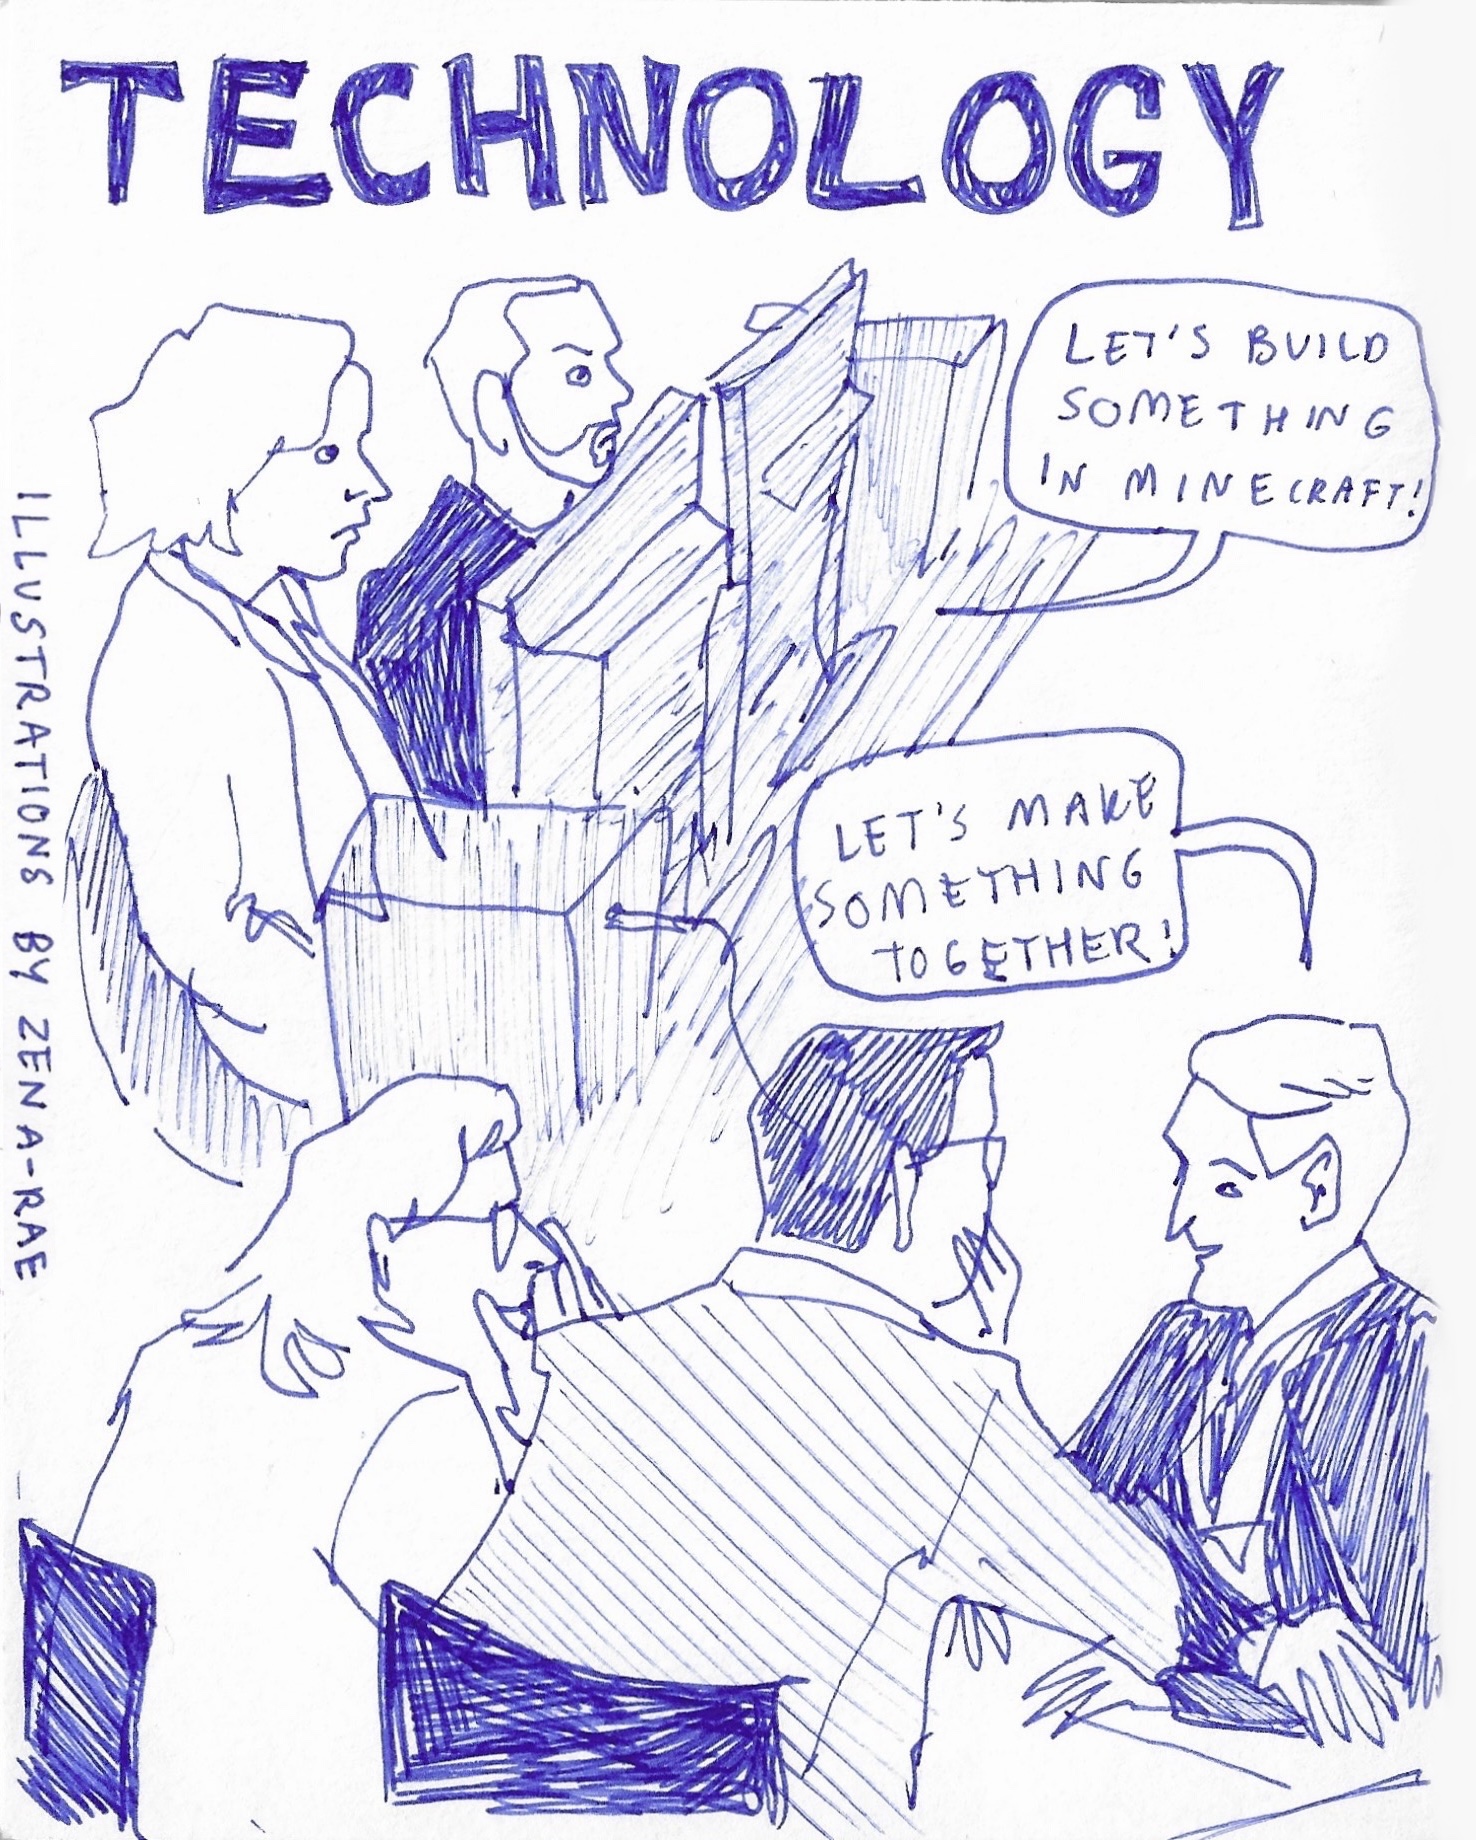 TECHNOLOGY
LET'S BUILD
SOMETHING
IN MINECRAFT!
LET'S MAKE
SOMETHING
TOGETHER!
ILLUSTRATIONS BY ZEN A-RAE